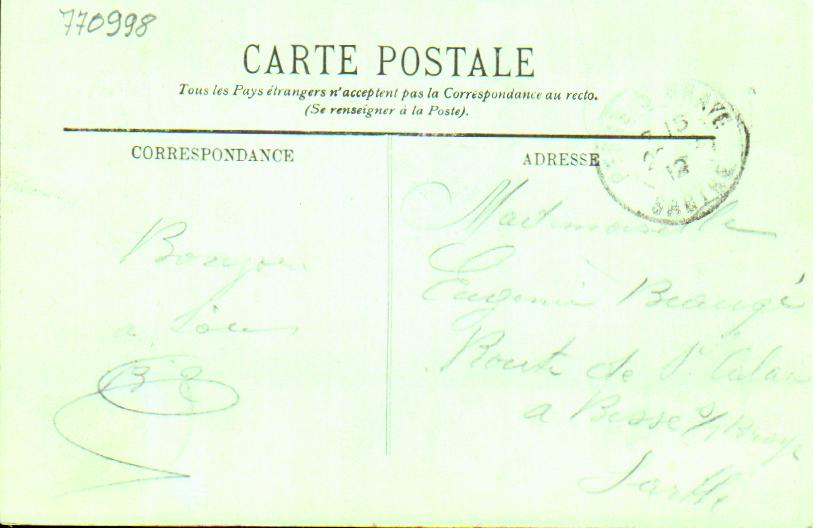 770998
CARTE POSTALE
Tous les Pays étrangers n'acceptent pas la Correspondance au recto.
(Se renseigner à la Poste).
CORRESPONDANCE
ADRESSE
BRAYE
15
12
SARTHE
Bonjour
a Tous
Mademoiselle
Eugenie Beaugé
Route de St Calais
a Besse s/ Braye
Sarthe